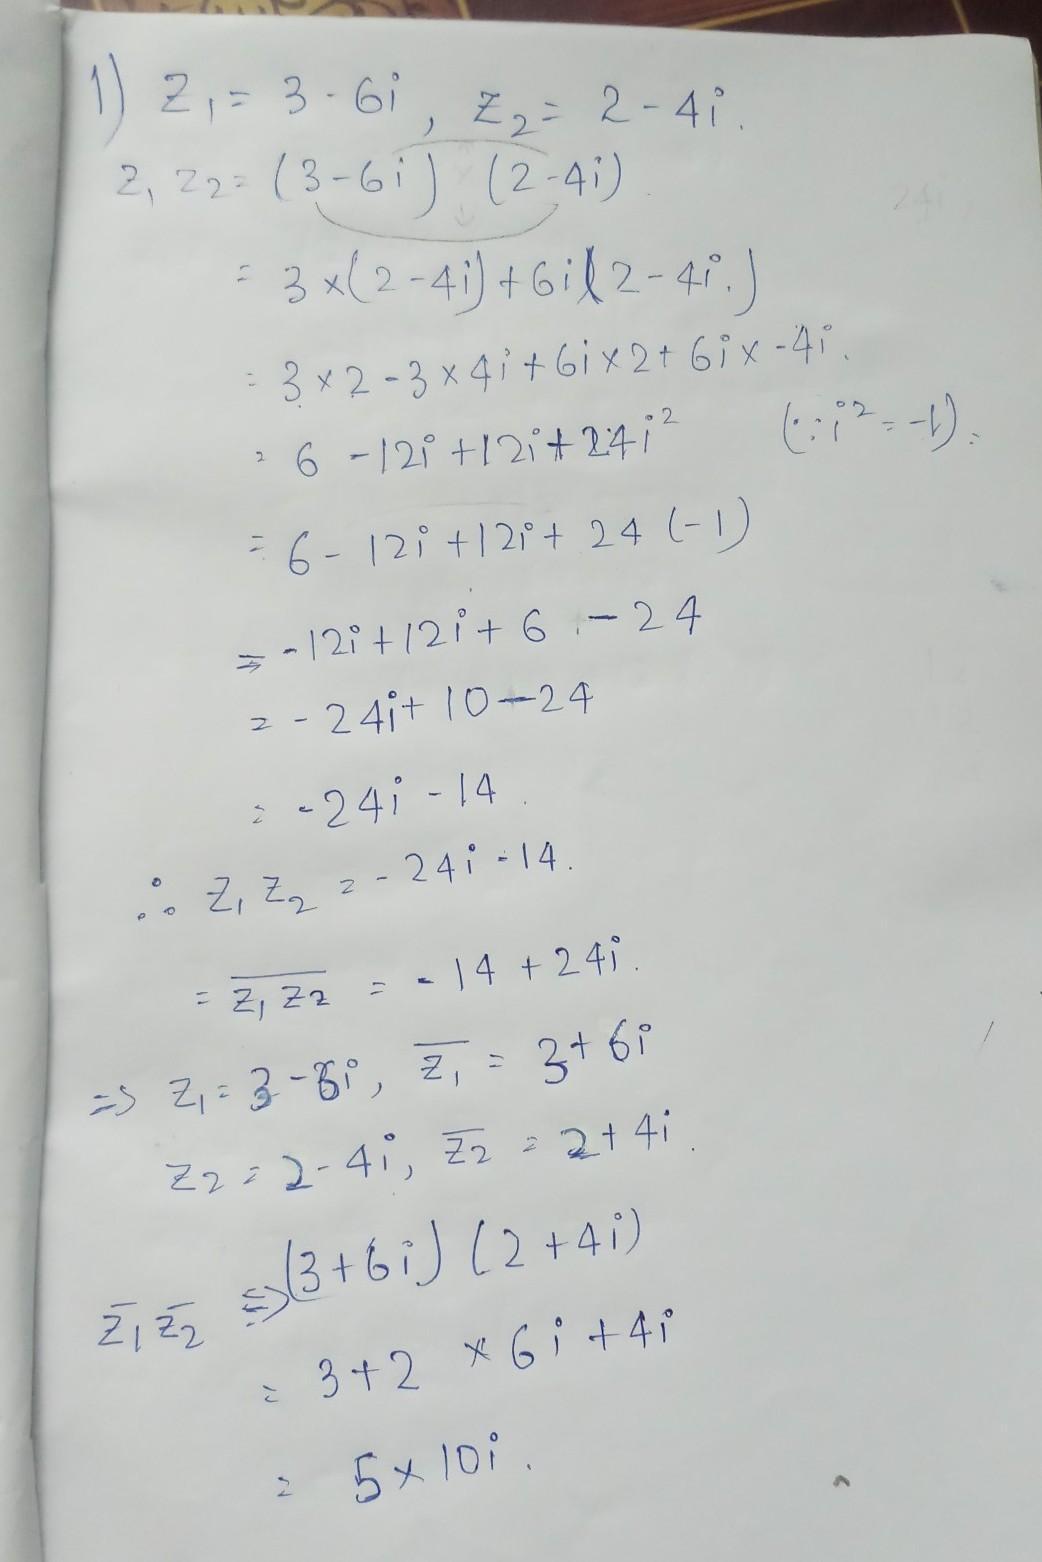 1) Z₁ = 3 - 6i, Z₂ = 2 - 4i.
Z₁ Z₂ = (3-6i) (2-4i)
= 3 x(2-4i)+6i(2-4i.)
= 3×2-3×4i+6i×2+6i×-4i.
= 6 -12i+12i+24i² (∵i²=-1).
= 6- 12i+12i+ 24 (-1)
= -12i+12i+ 6 - 24
= - 24i+ 10-24
= -24i -14.
∴ Z₁ Z₂ = - 24i -14.
= \overline{Z₁ Z₂} = - 14 + 24i.
=> Z₁ = 3-6i, \overline{Z₁} = 3+6i
Z₂ = 2-4i, \overline{Z₂} = 2+4i.
\overline{Z₁} \overline{Z₂} => (3+6i) (2+4i)
= 3+2 × 6i+4i
= 5×10i.